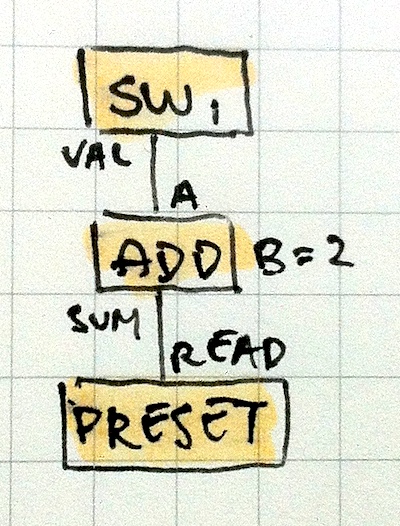 SW1
VAL
A
ADD B=2
SUM
READ
PRESET